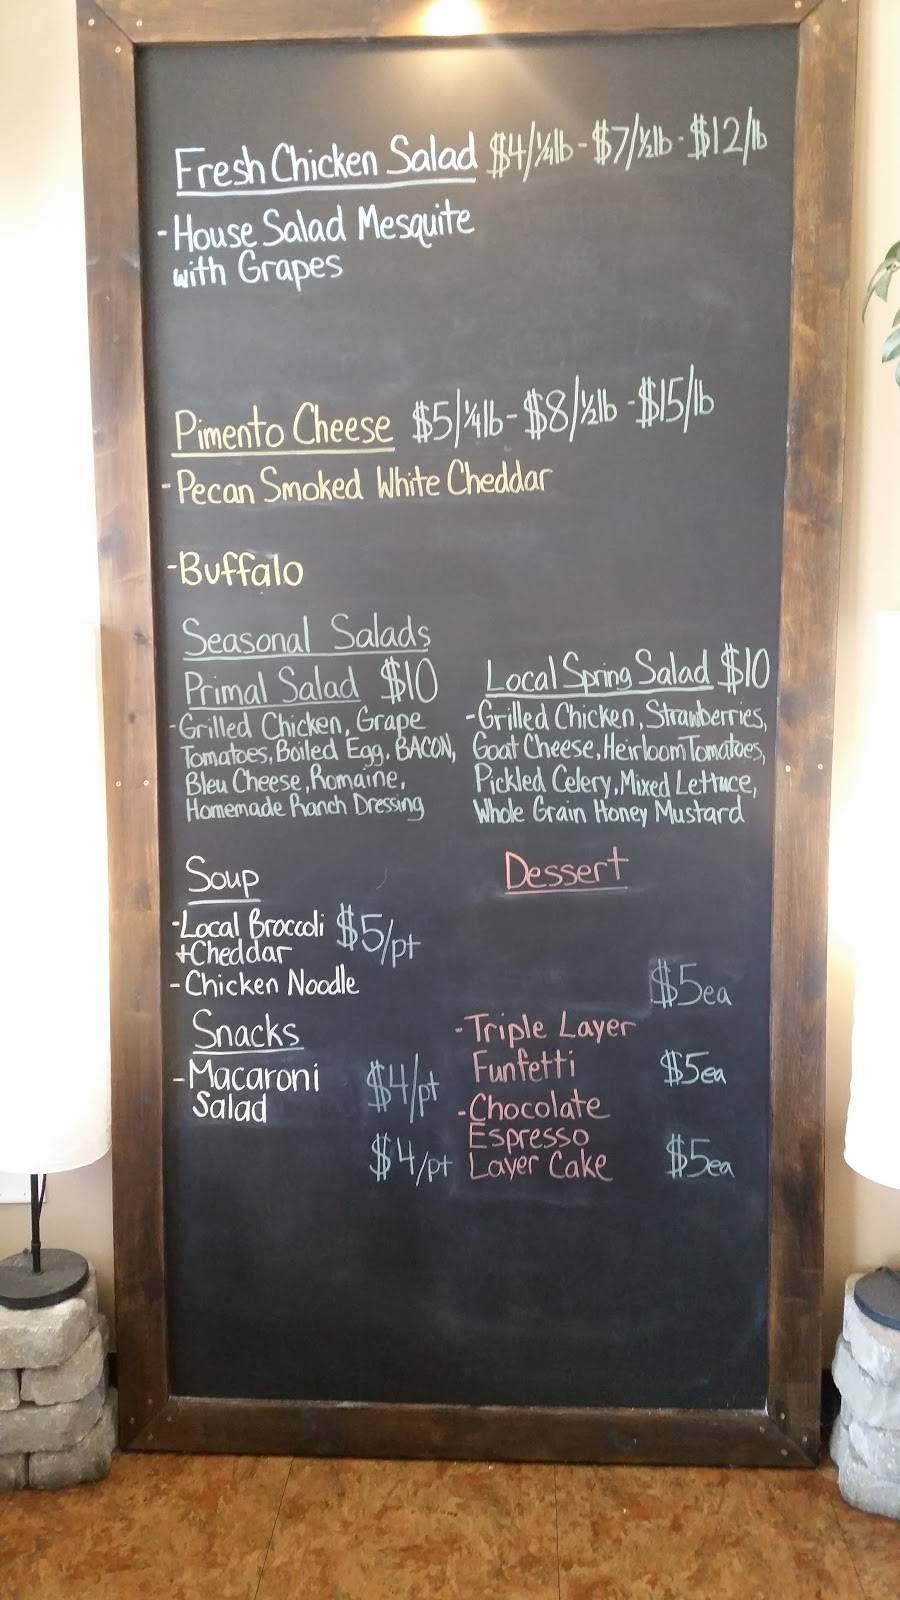 Fresh Chicken Salad $4/¼lb - $7/½lb - $12/lb
- House Salad Mesquite
with Grapes
Pimento Cheese $5/¼lb - $8/½lb - $15/lb
- Pecan Smoked White Cheddar
- Buffalo
Seasonal Salads
Primal Salad $10
- Grilled Chicken, Grape
Tomatoes, Boiled Egg, BACON,
Bleu Cheese, Romaine,
Homemade Ranch Dressing
Local Spring Salad $10
- Grilled Chicken, Strawberries,
Goat Cheese, Heirloom Tomatoes,
Pickled Celery, Mixed Lettuce,
Whole Grain Honey Mustard
Soup
- Local Broccoli $5/pt
+ Cheddar
- Chicken Noodle
Snacks
- Macaroni $4/pt
Salad
$4/pt
Dessert
$5ea
- Triple Layer
Funfetti $5ea
- Chocolate
Espresso
Layer Cake $5ea